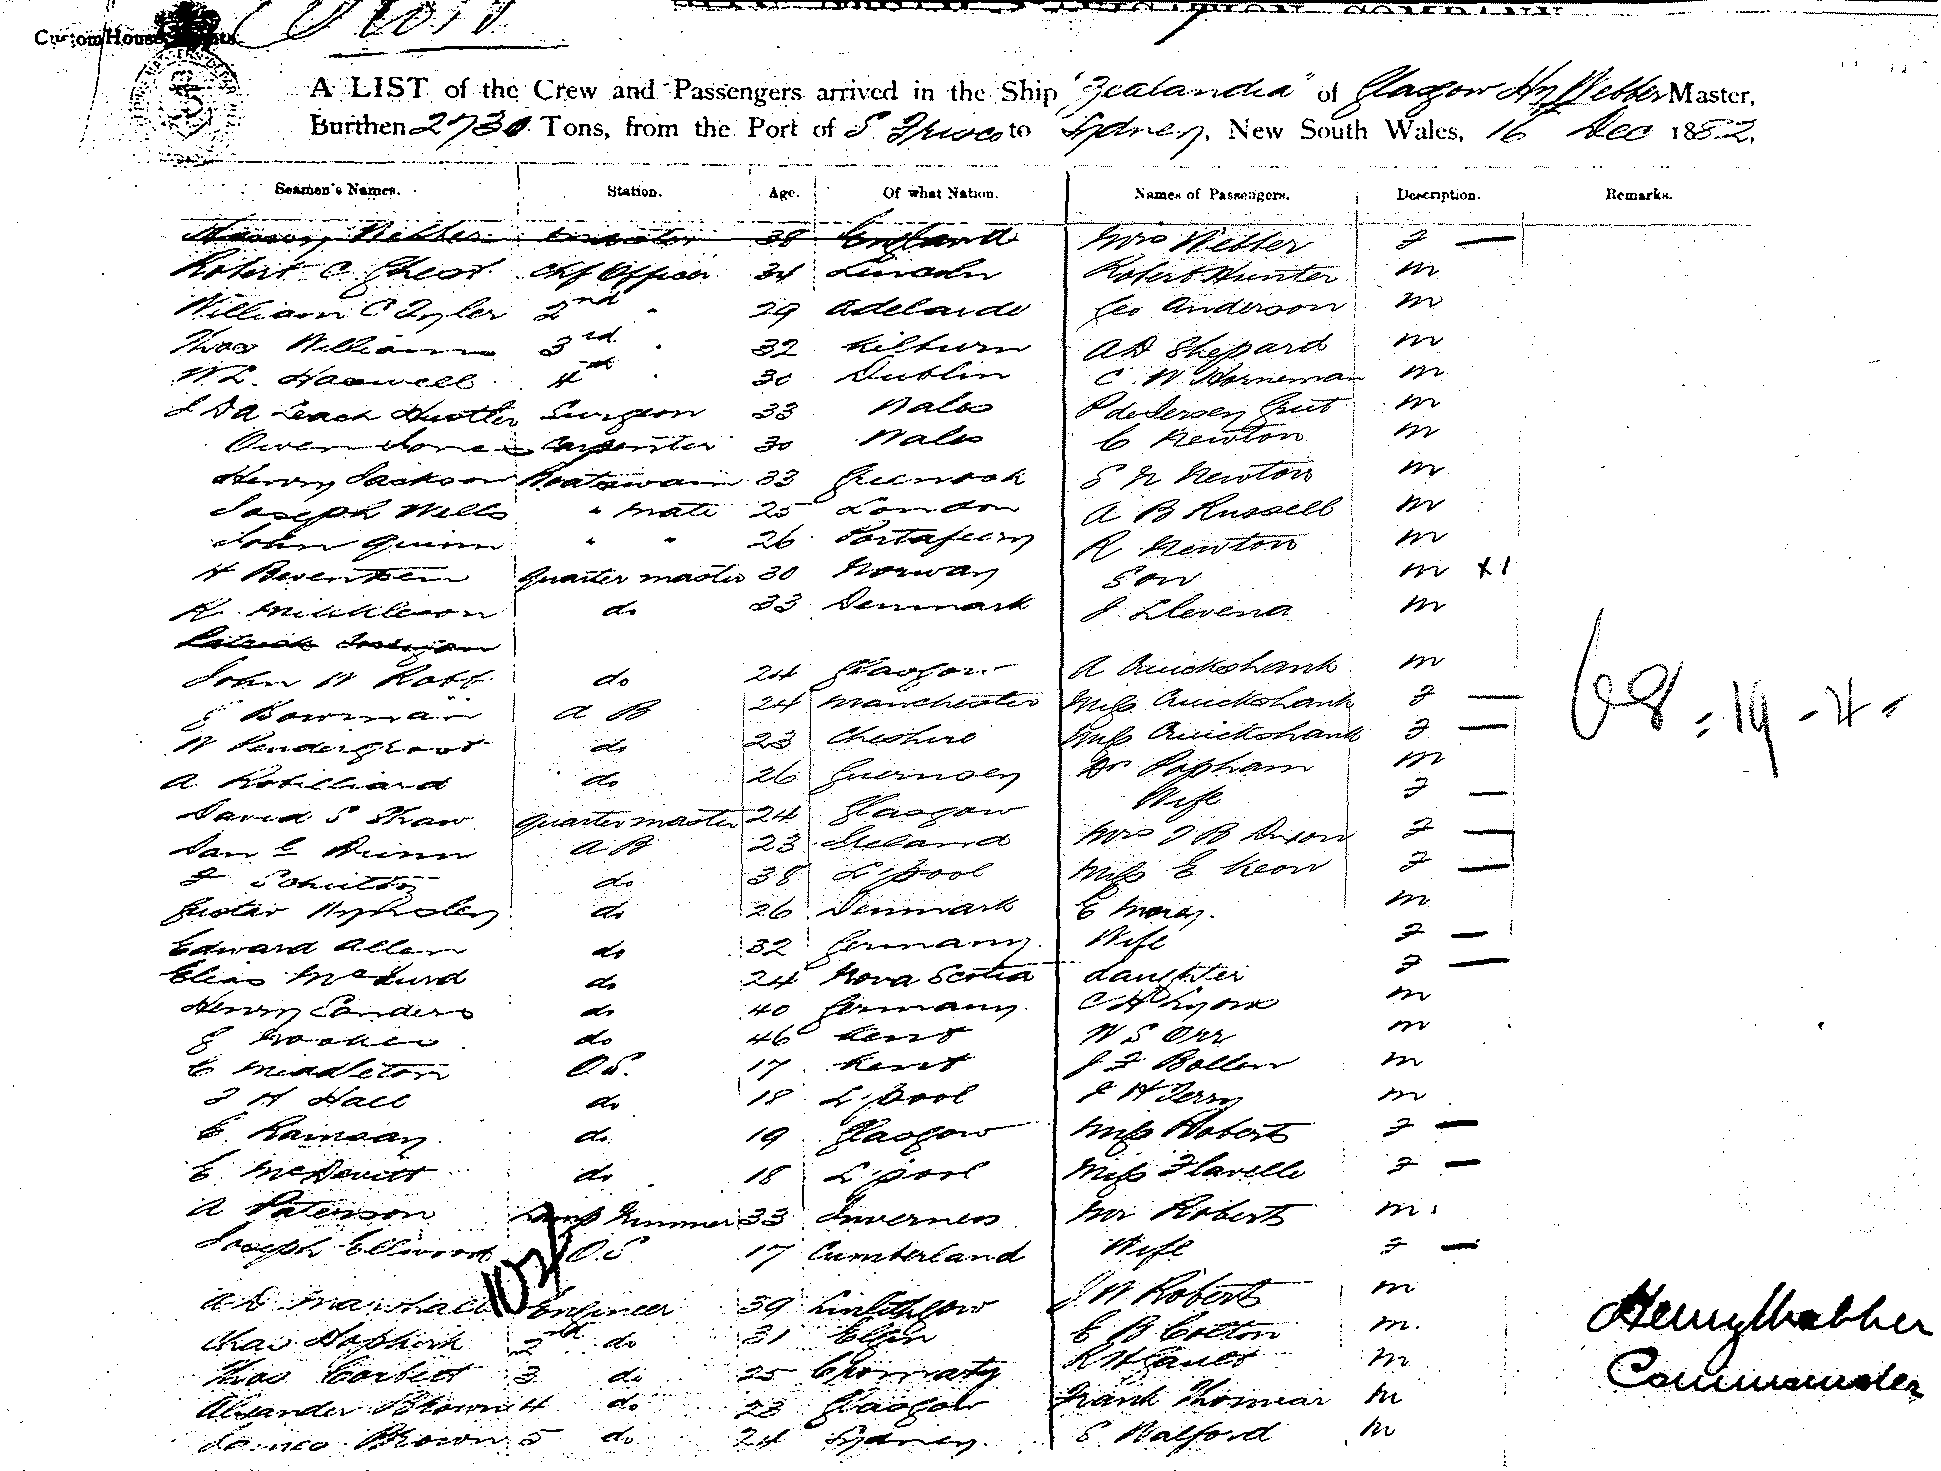 Custom House
A LIST of the Crew and Passengers arrived in the Ship "Zealandia" of Glasgow Hy Webber Master,
Burthen 2730 Tons, from the Port of S. Frisco to Sydney, New South Wales, 16 Dec 1882.
Seamen's Names. Station. Age. Of what Nation. Names of Passengers. Description. Remarks.
Henry Webber 38 England Mrs Webber F —
Robert C Ghest Chf Officer 34 Lincoln Robert Hunter M
William C Tyler 2nd " 29 Adelaide Geo Anderson M
Thos Williams 3rd " 32 Kilburn A D Shepard M
W L. Haswell 4th " 30 Dublin C W Horneman M
Leach Hustler Surgeon 33 Wales P de Jersey Grut M
Owen Jones Carpenter 30 Wales C Newton M
Henry Jackson Boatswain 33 Greenock S N Newton M
Joseph Wells " Mate 25 London A B Russell M
John Quinn " " 26 R Newton M
H Quarter master 30 Norway Son M x1
K. do 33 Denmark J. Llevena M
Patrick
John W Robb do 24 Glasgow A Cruickshank M
E Bowman A B 24 Manchester Miss Cruickshank F —
W Pendergroot do 23 Cheshire Miss Cruickshank F —
A. Robilliard do 26 Guernsey Dr Popham M
Wife F —
David S Shaw Quarter master 24 Glasgow
Dan E Dunn A B 23 Ireland Mrs J B Dixon F —
F Schultz do 38 L'pool Miss E Keon F —
Gustav do 26 Denmark E Morey. M
Edward Allen do 32 Germany Wife F —
Elias do 24 Nova Scotia daughter F —
Henry Sanders do 40 Germany C H Lyons M
do 46 Kent W S Orr M
C Middleton O.S. 17 Kent J F Bollen M
F H Hall do 18 L'pool F H Terry M
C. Ramsay do 19 Glasgow Miss Roberts F —
E McDevitt do 18 L'pool Miss Flavelle F —
A Paterson Lamp Trimmer 33 Inverness Mr Roberts M.
Joseph Ellwood O.S 17 Cumberland Wife F —
102/
A D Marshall Engineer 39 Linlithgow J W Roberts M
Chas Hopkirk 2nd do 31 Elgin E B Cotton M.
Thos Corbett 3 do 25 Cromarty M
Alexander Brown 4 do 23 Glasgow Frank Thomas M
James Brown 5 do 24 Sydney S. Walford M
68 - 19 - 4 -
Henry Webber
Commander